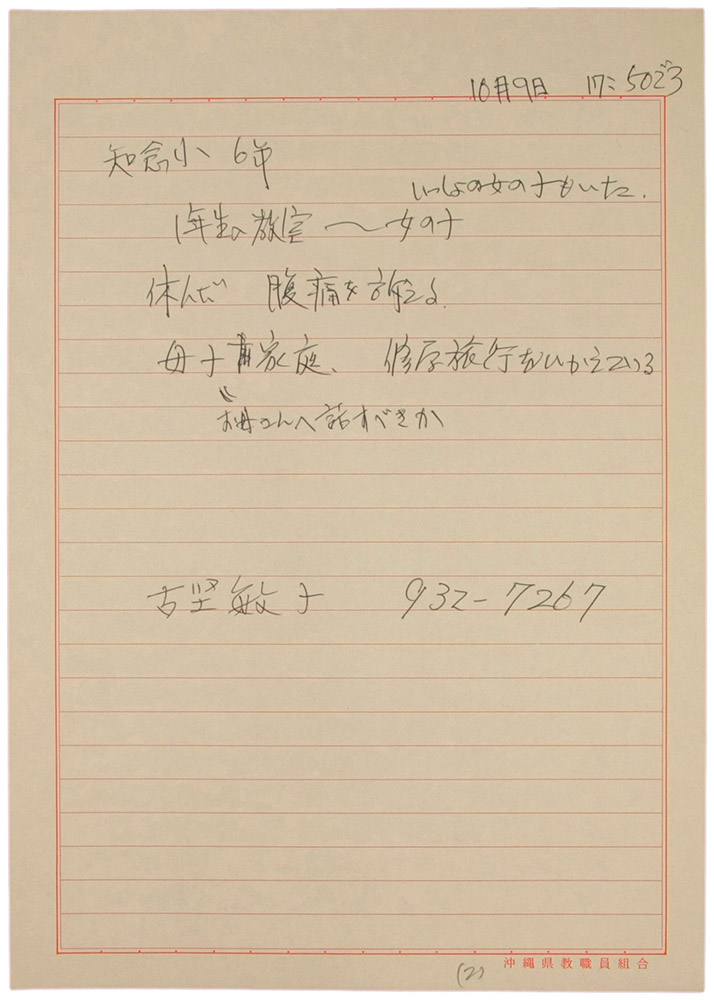 10月9日 17:50ごろ
知念小 6年
いっしょの女の子もいた.
1年生の教室〜女の子
休んだ 腹痛を訴える.
母子家庭、修学旅行をひかえている
お母さんへ話すべきか
古堅敏子 932-7267
(2) 沖縄県教職員組合